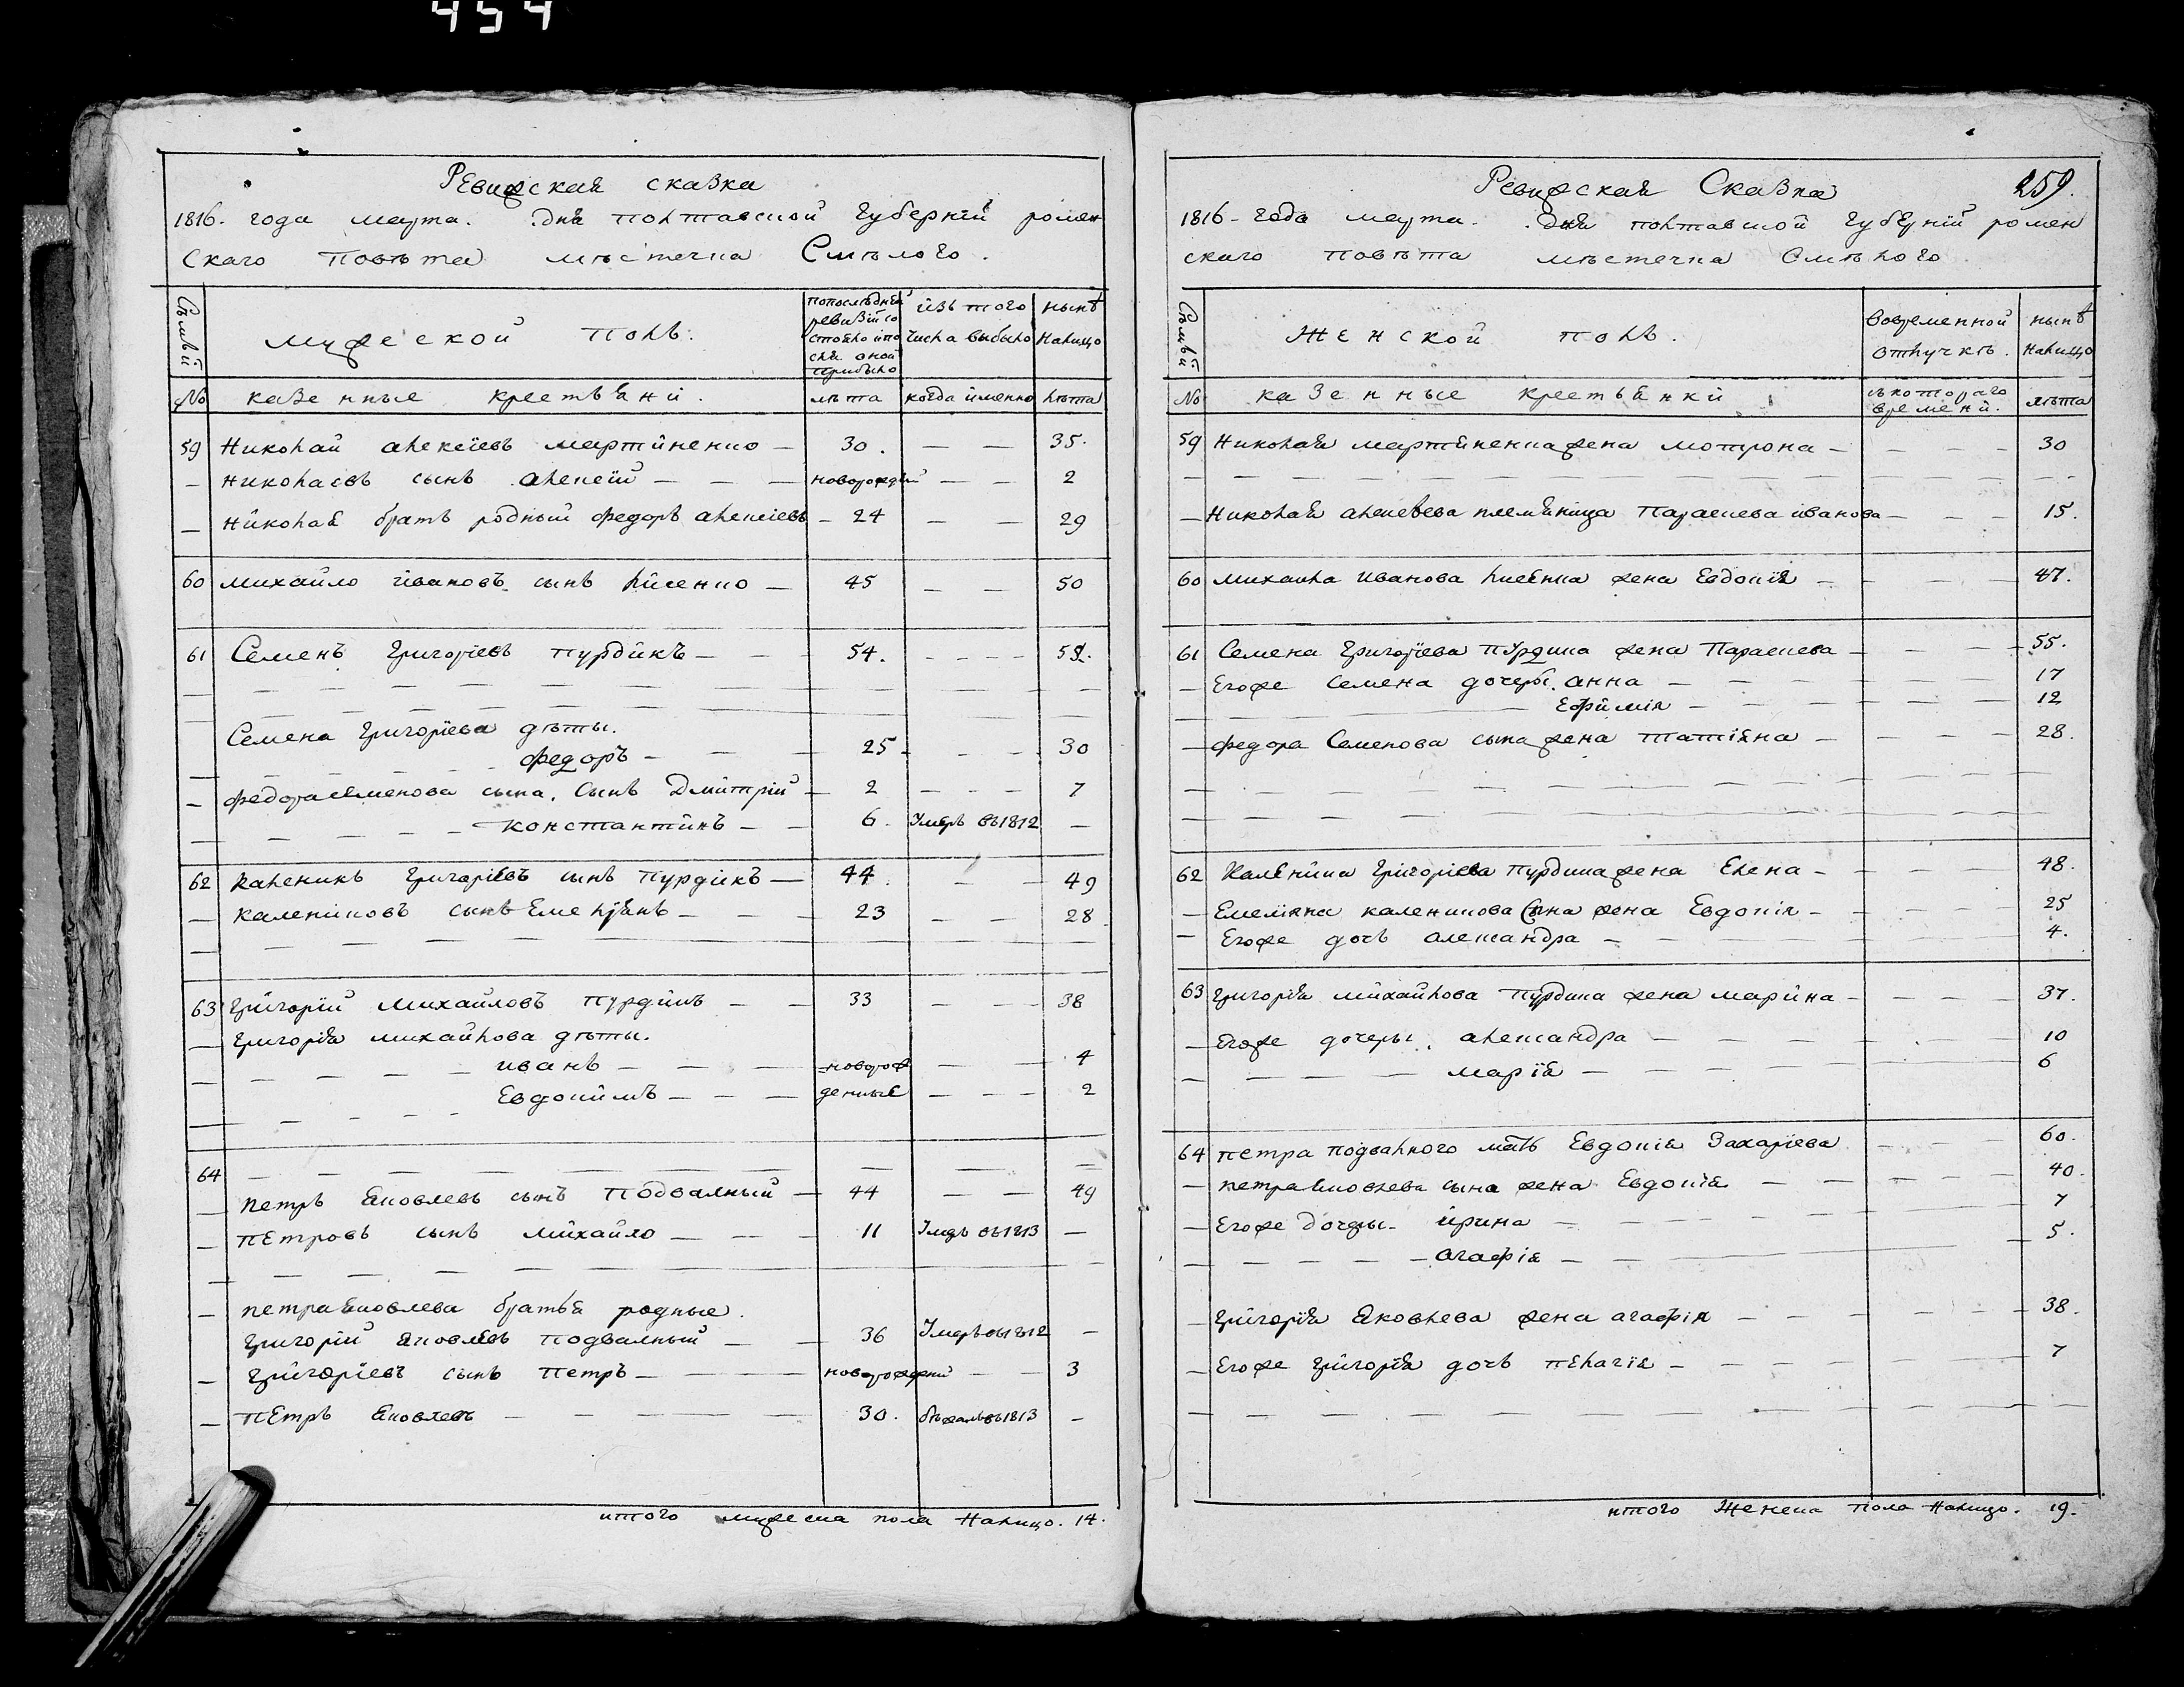 454
Ревижская сказка
1816. года марта. Дня полтавской губернїй ромен
скаго повѣта мѣстечка Смѣлого.
Семьи
мужеской полъ.
попослѣдней ревизїи состояло ипослѣ оной прибыло
изъ того числа выбыло
нынѣ налицо
№ казенные крестьяни.
лѣта
когда именно
лѣта
59 Николай алексїевъ мартиненко — 30. — — 35.
— николаевъ сынъ алексїй — — — новорождїй — — 2
— николая братъ родный федоръ алексїевъ — 24 — — 29
60 михайло ївановъ сынъ лисенко — 45 — — 50
61 Семенъ григорїевъ пурдикъ — — — 54. — — — 59.
Семена григорїева дѣты.
федоръ — — — 25 — — — 30
— федора семенова сына. Сынъ Дмитрїй — 2 — — — 7
— — — — — константинъ — — 6. Умеръ въ1812 —
62 каленикъ григорїевъ сынъ пурдикъ — 44. — — 49
— калениковъ сынъ Емельянъ — — — 23 — — 28
63 григорїй михайловъ пурдикъ — — 33 — — — 38
— григорїя михайлова дѣты.
— — — — — иванъ — — — новорож — — 4
— — — — Евдокимъ — — — денные — — — 2
64 — — — — — — — — —
— петръ яковлевъ сынъ подвалный — 44 — — 49
— петровъ сынъ михайло — — — 11 Умеръ въ1813 —
— петра яковлева братья родные.
григорїй яковлевъ подвалный — — 36 Умеръ въ1812 —
— григорїевъ сынъ петръ — — — новорожденїй — — 3
— петръ яковлевъ — — — — 30. бѣжалъ въ1813 —
итого мужеска пола налицо. 14.
Ревижская Сказка 259.
1816 - года марта. Дня полтавской губернїй ромен
скаго повѣта мѣстечка Смѣлого
Семьи
Женской полъ.
вовременной отлучкѣ.
нынѣ налицо
№ казенные крестьянки
съкотораго времени.
лѣта
59 Николая мартиненка жена мотрона — — — — 30
— Николая алексеева племяница Параскева иванова — — — 15.
60 михаила иванова лисенка жена Евдокїя — — — — 47.
61 Семена григорїева пурдика жена Параскева — — — — 55.
— Егоже семена дочеры. анна — — — — 17
— — Ефимїя — — — — 12
— федора Семенова сына жена татїяна — — — — 28.
62 Каленика григорїева пурдика жена Елена — — — — 48.
— Емеляна каленикова сына жена Евдокїя — — — — 25
— Егоже дочь александра — — — — 4.
63 григорїя михайлова пурдика жена марина — — — — 37.
— Егоже дочеры. александра — — — — 10
— — — — марїя — — — — 6
64 петра подвалного мать Евдокїя Захарїева — — — 60.
— петра яковлева сына жена Евдокїя — — — — 40.
— Егоже дочеры. ирина — — — — 7
— — — — — агафїя — — — 5.
— григорїя яковлева жена агафїя — — — — 38.
— Егоже григорїя дочь пелагїя — — — — 7
итого Женска пола налицо. 19.